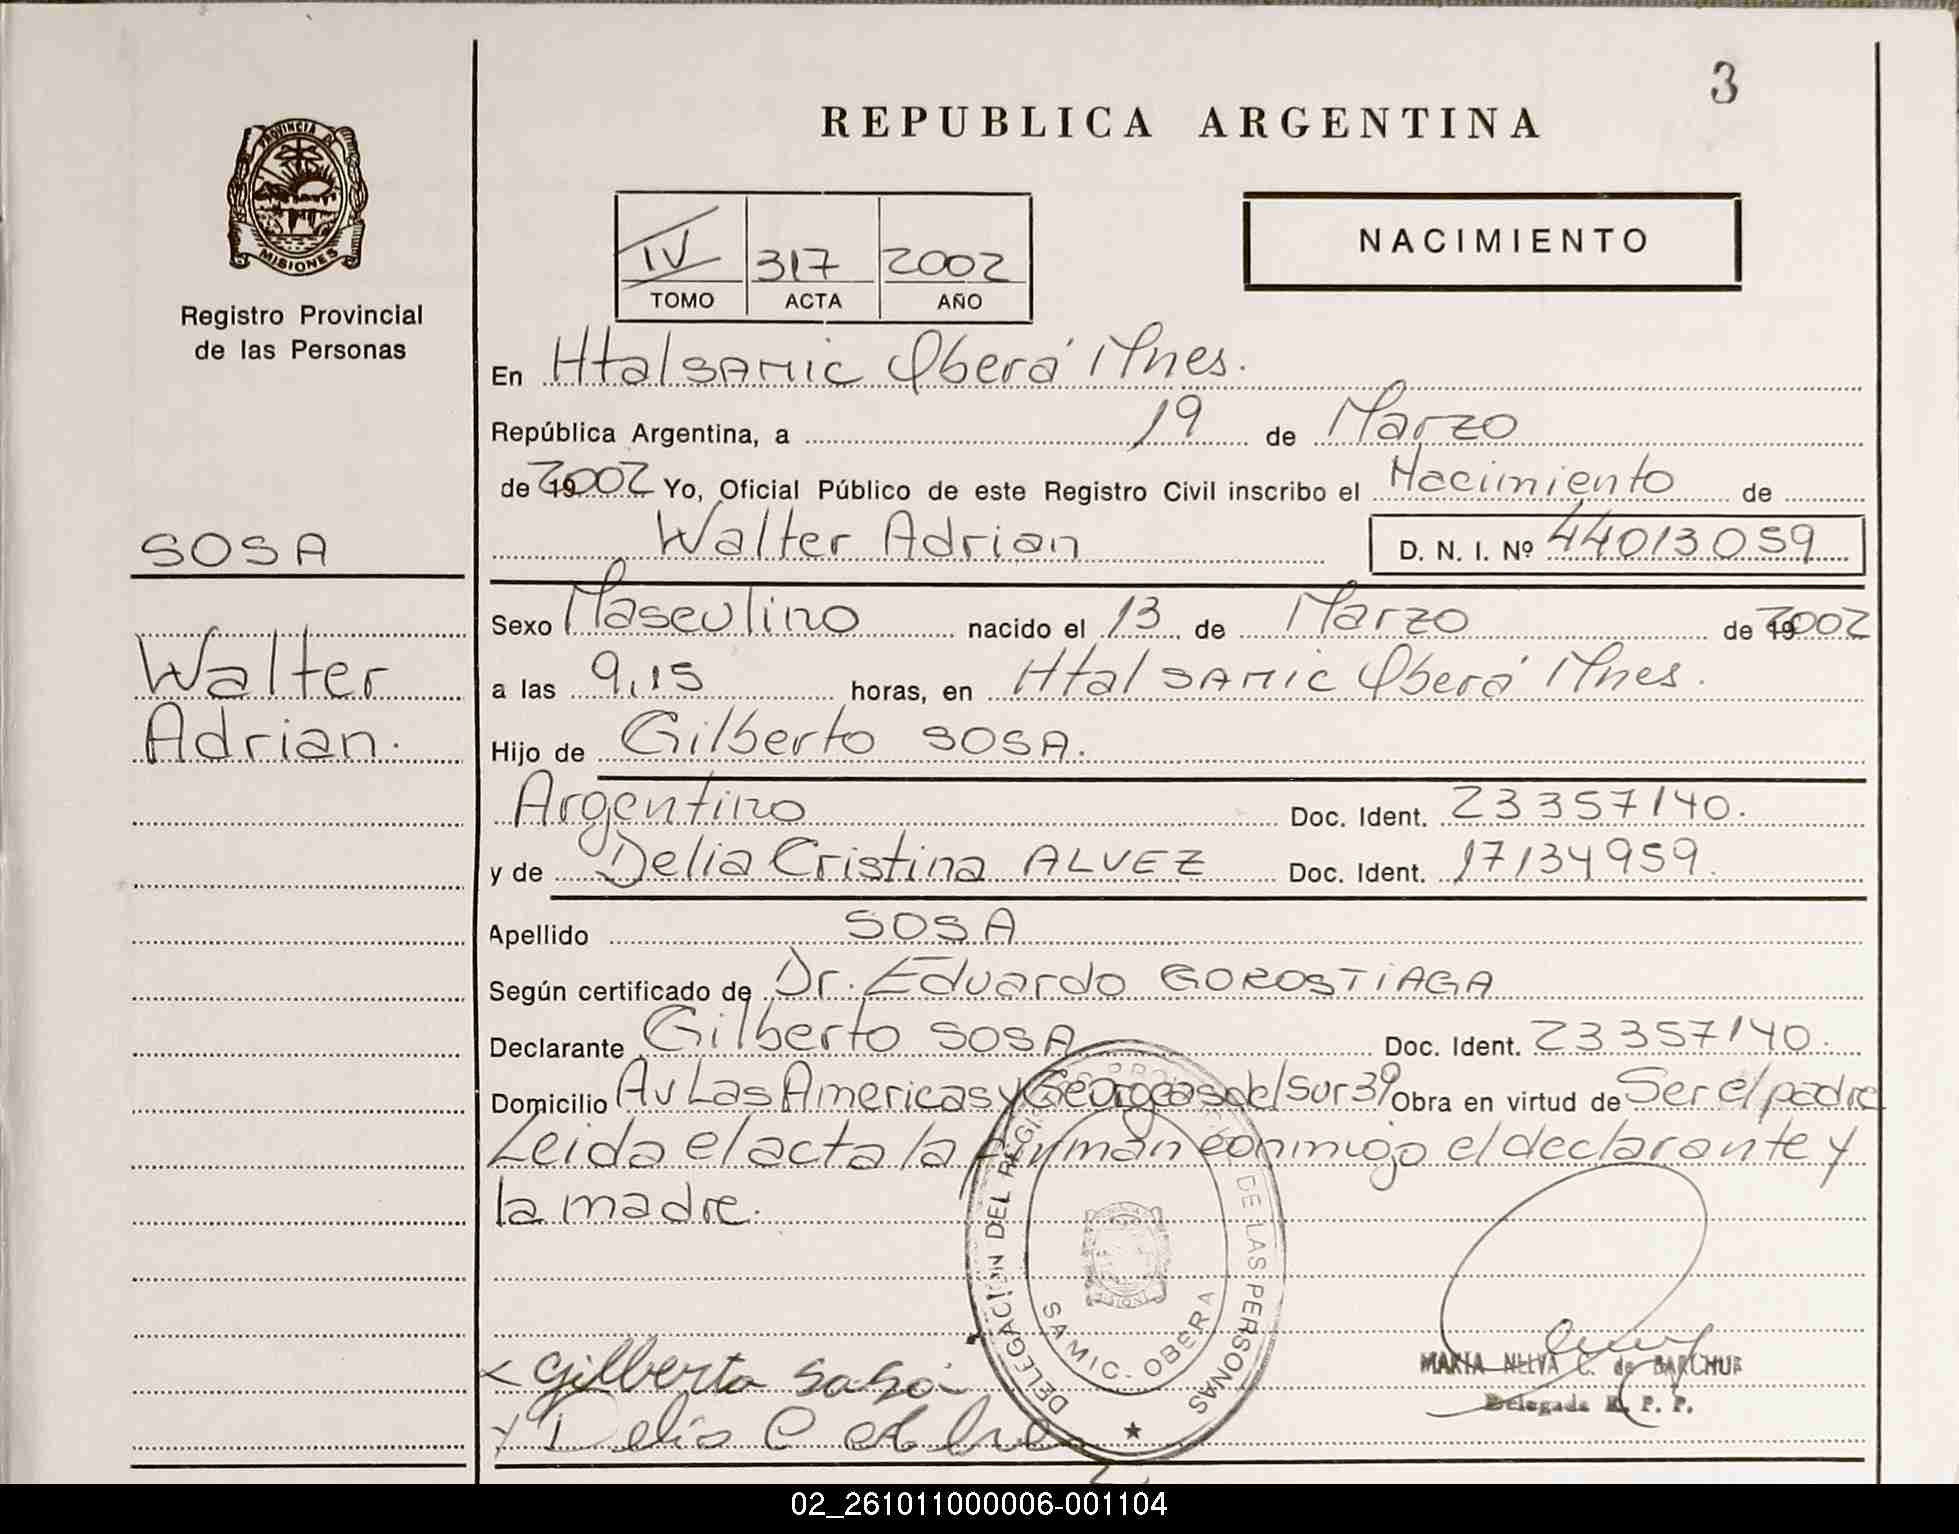 3
REPUBLICA ARGENTINA
PROVINCIA DE
MISIONES
Registro Provincial
de las Personas
IV 317 2002
TOMO ACTA AÑO
NACIMIENTO
En Htal SAMIC Oberá Mnes.
República Argentina, a 19 de Marzo
de 2002 Yo, Oficial Público de este Registro Civil inscribo el Nacimiento de
SOSA
Walter Adrian D. N. I. Nº 44013059
Sexo Masculino nacido el 13 de Marzo de 2002
Walter
a las 9,15 horas, en Htal SAMIC Oberá Mnes.
Adrian.
Hijo de Gilberto SOSA.
Argentino Doc. Ident. 23357140.
y de Delia Cristina ALVEZ Doc. Ident. 17134959.
Apellido SOSA
Según certificado de Dr. Eduardo GOROSTIAGA
Declarante Gilberto SOSA Doc. Ident. 23357140.
Domicilio Av Las Americas y Georgeas del Sur 39 Obra en virtud de Ser el padre
Leida el acta la firman conmigo el declarante y
la madre.
DELEGACIÓN DEL REGISTRO DE LAS PERSONAS
SAMIC. OBERA
Gilberto Sosa
Delia C
MARIA NELVA C. de
Delegada R. P. P.
02_261011000006-001104